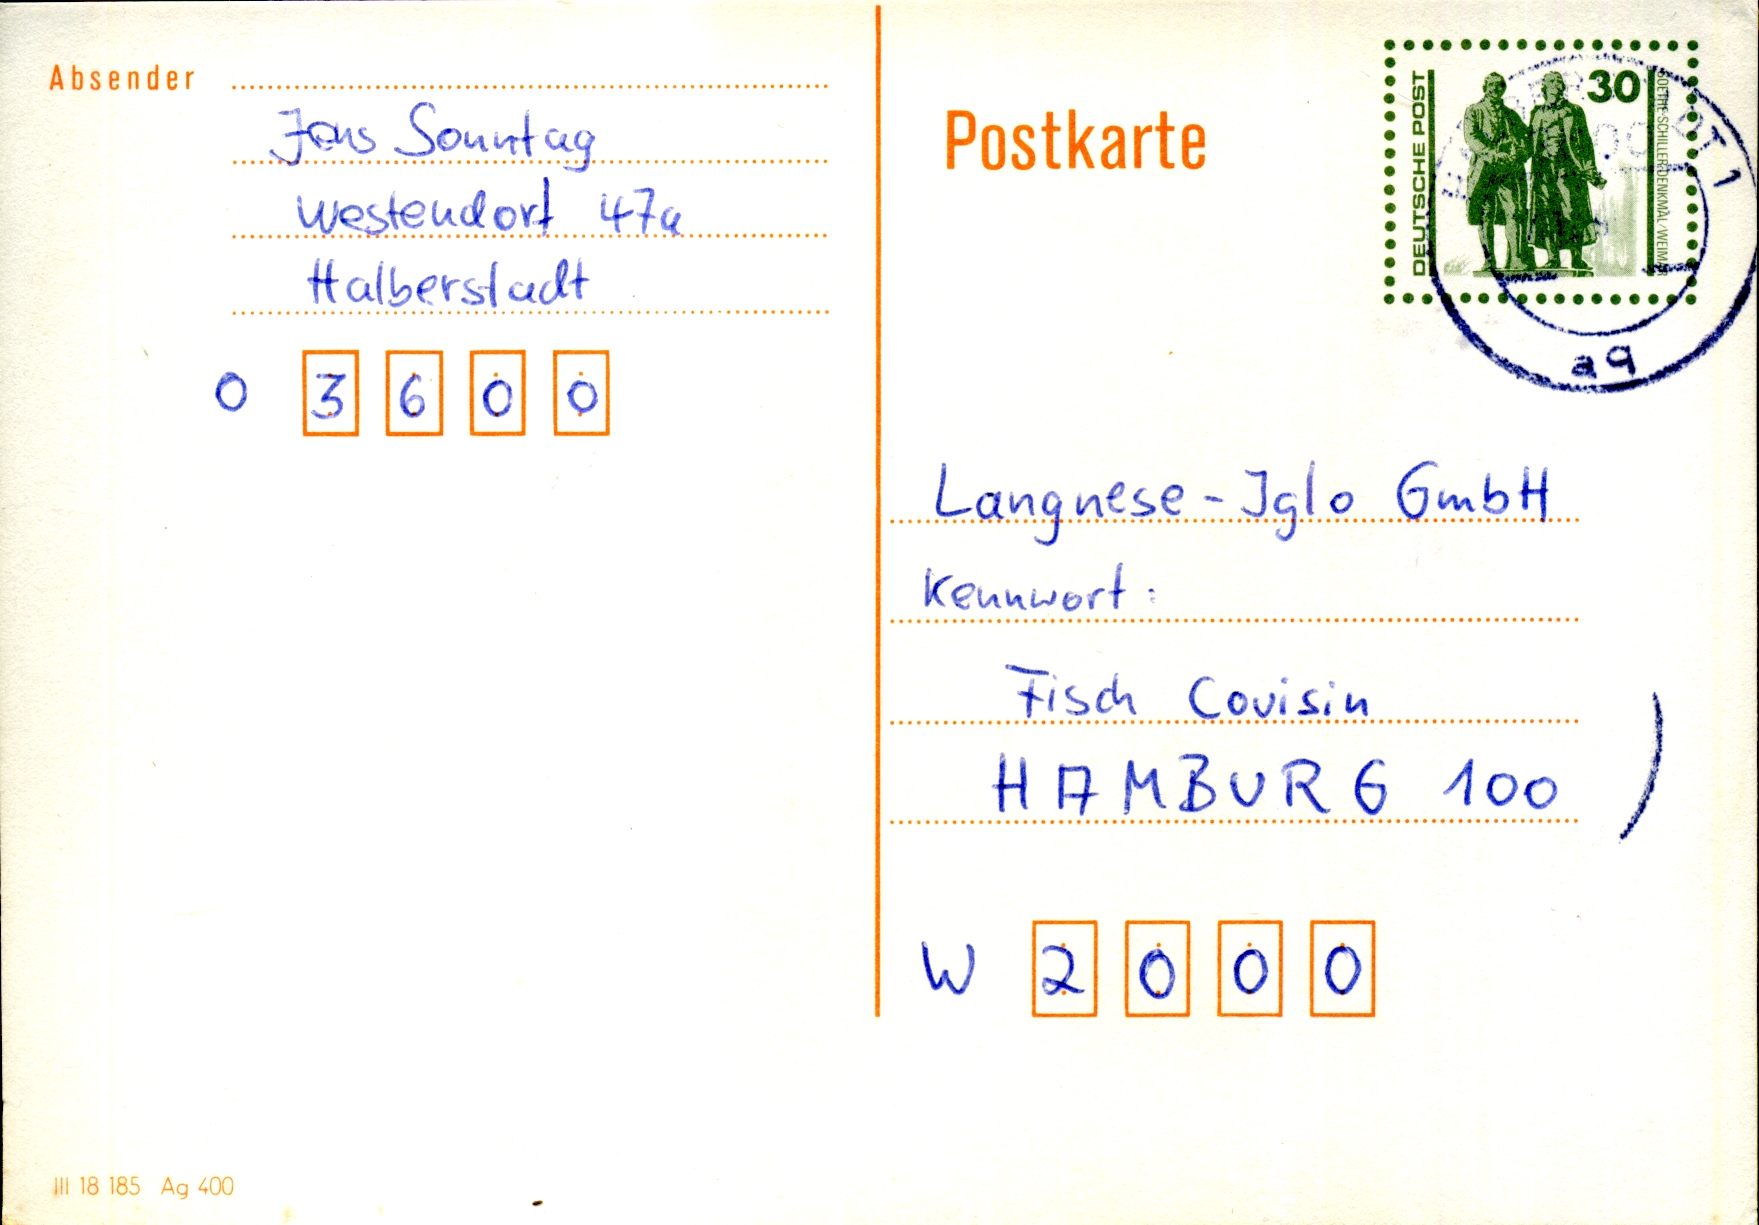 Absender
Jens Sonntag
Westendorf 47a
Halberstadt
O 3600
Postkarte
DEUTSCHE POST
30
GOETHE-SCHILLER-DENKMAL/WEIMAR
1
aq
Langnese-Iglo GmbH
Kennwort:
Fisch Couisin
HAMBURG 100
W 2000
III 18 185 Ag 400